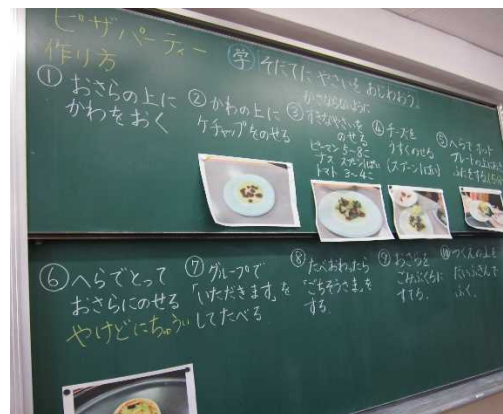 ピザパーティー
作り方
学 そだてた やさいを あじわおう。
① おさらの上に
かわをおく
② かわの上に
ケチャップをのせる
かさならないように
③ すきなやさいを
のせる
ピーマン 5~8こ
ナス スプーン1ぱい
トマト 3~4こ
④ チーズを
うすくのせる
(スプーン1ぱい)
⑤ へらでホット
プレートの上におき
ふたをする
⑥ へらでとって
おさらにのせる
やけどにちゅうい
⑦ グループで
「いただきます」を
してたべる
⑧ たべおわったら
「ごちそうさま」を
する。
⑨ おさらを
ごみぶくろに
すてる。
⑩ つくえの上を
だいふきんで
ふく。